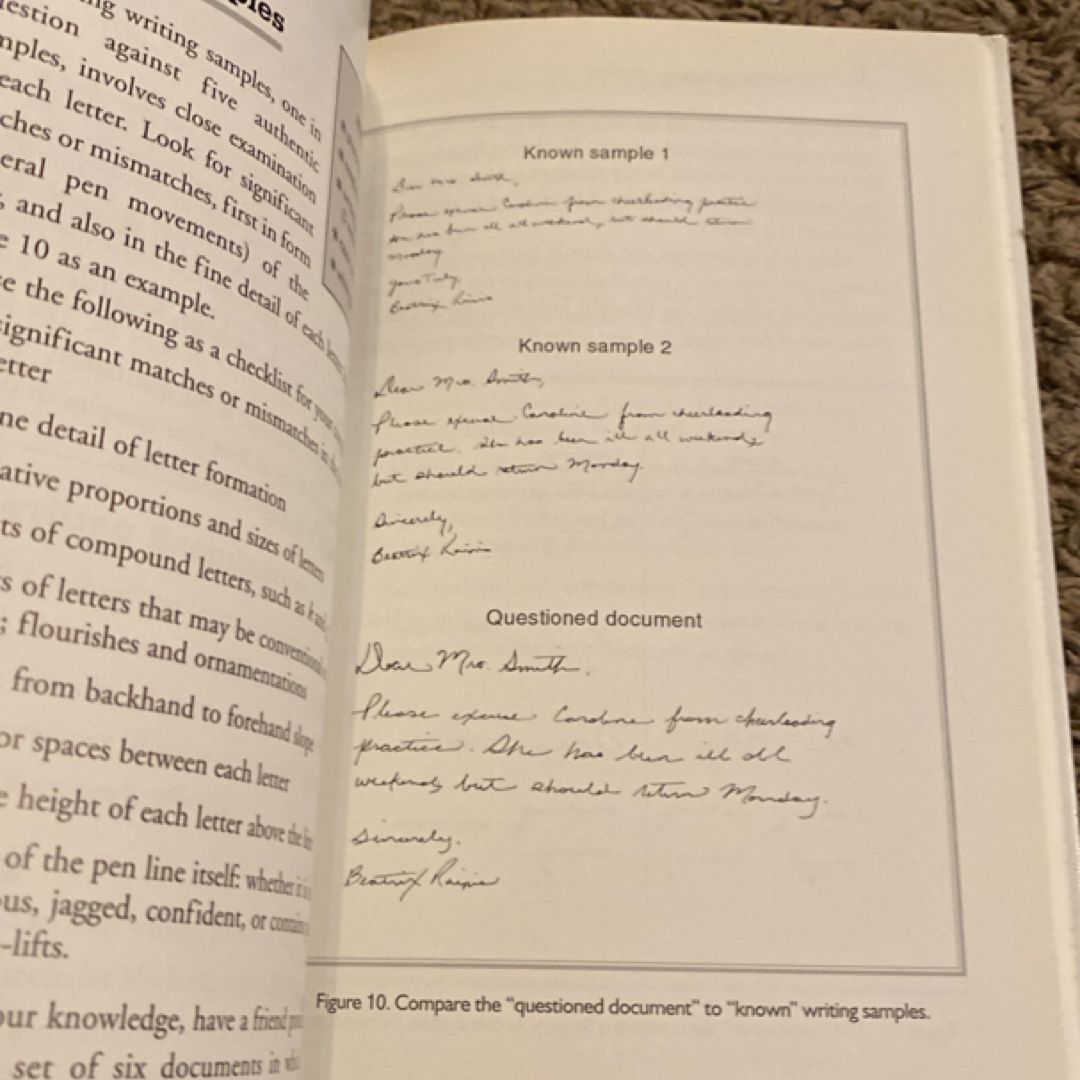 ples
ng writing samples, one in
estion against five authentic
mples, involves close examination
each letter. Look for significant
ches or mismatches, first in form
eral pen movements) of the
, and also in the fine detail of each
e 10 as an example.
e the following as a checklist for
significant matches or mismatches in
etter
ne detail of letter formation
ative proportions and sizes of letters
ts of compound letters, such as
s of letters that may be
; flourishes and ornamentations
from backhand to forehand slope
or spaces between each letter
e height of each letter above the line
of the pen line itself: whether it is
ous, jagged, confident, or
-lifts.
our knowledge, have a friend
set of six documents in
Known sample 1
Dear Mrs. Smith,
Please excuse Caroline from cheerleading practice
She has been ill all weekend, but should return
Monday.
Yours Truly,
Beatrix Rainie
Known sample 2
Dear Mrs. Smith,
Please excuse Caroline from cheerleading
practice. She has been ill all weekend,
but should return Monday.
Sincerely,
Beatrix Rainie
Questioned document
Dear Mrs. Smith.
Please excuse Caroline from cheerleading
practice. She has been ill all
weekend, but should return Monday.
Sincerely.
Beatrix Rainie
Figure 10. Compare the "questioned document" to "known" writing samples.